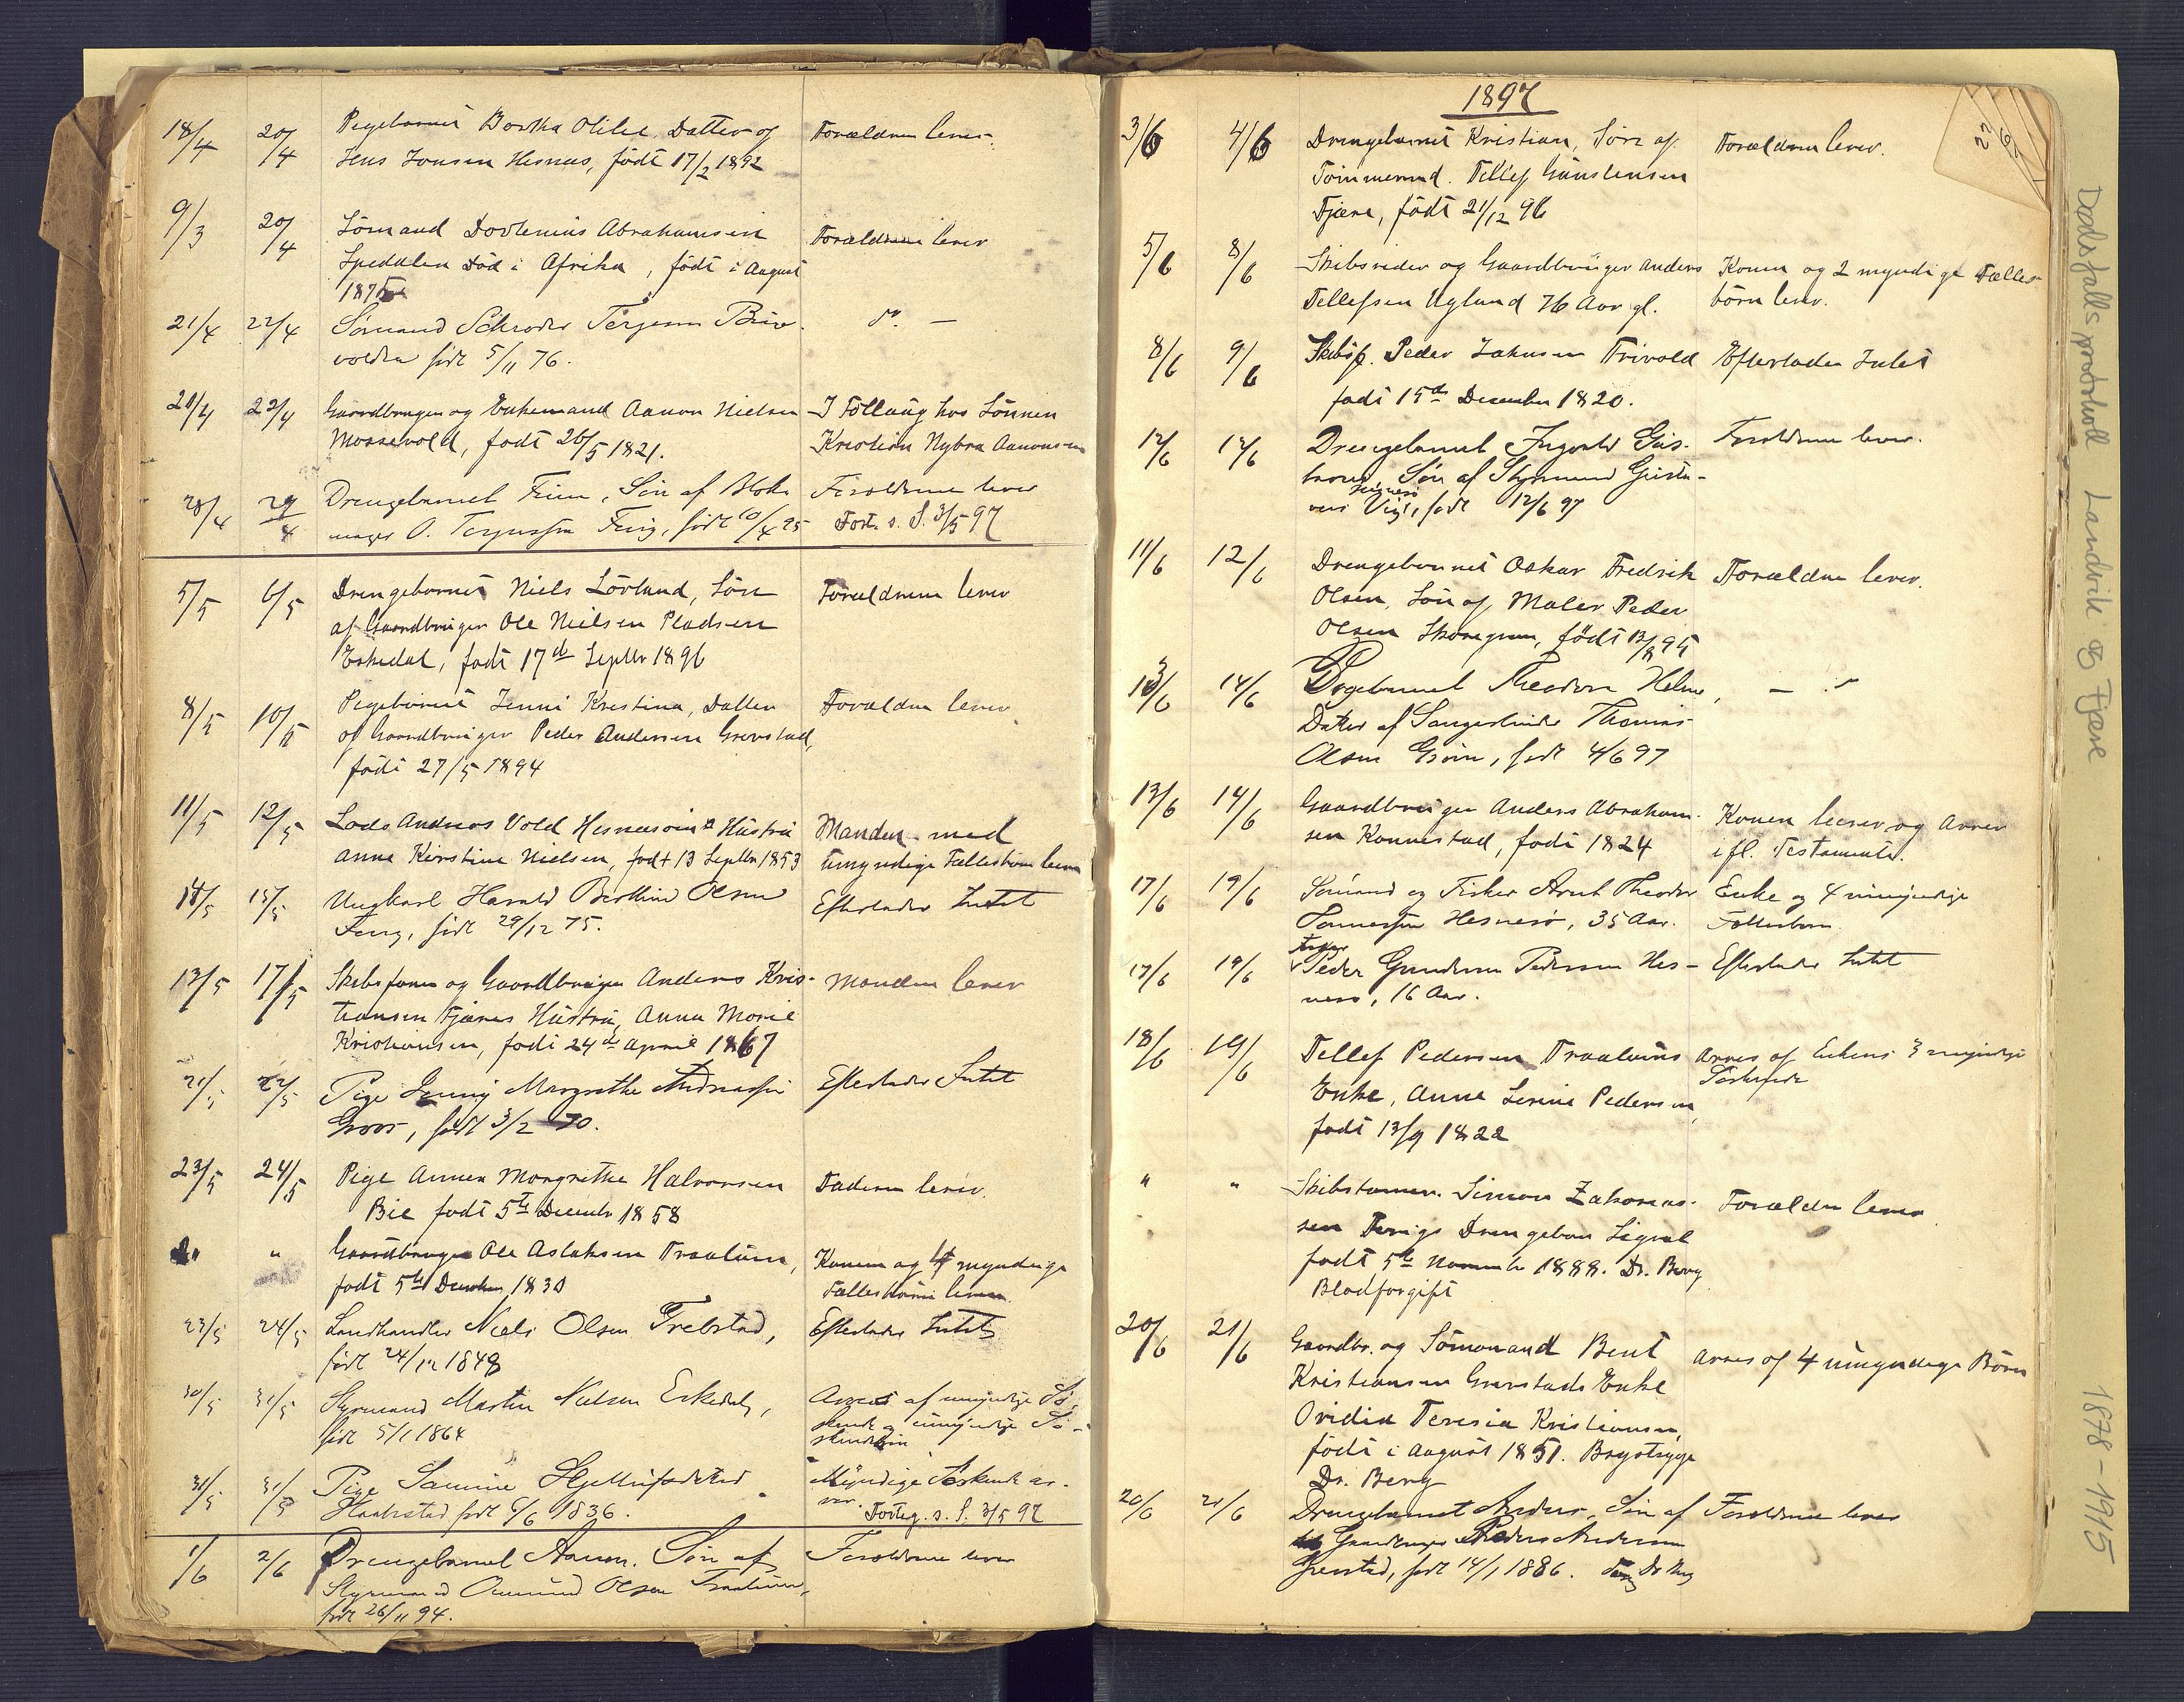 18/4 20/4 Pigebarnet Bertha Olilie Datter af Forældrene lever.
Jens Jensen Hesnes, født 17/2 1892
9/3 20/4 Sömand Dovlenius Abrahamsen Forældrene lever
Spedalen Död i Afrika, födt i August
187
21/4 22/4 Sömand Schrøder Terjesen Brie- do —
volden født 5/11 76.
21/4 22/4 Gaardbruger og Enkemand Aanon Nielsen I Föllaug hos Sönnen
Morsevold, født 26/5 1821. Kristian Nybra Aanonsen
28/4 29/4 Drengebarnet Finn, Søn af Blok- Forældrene lever
mager O. Terjussen Fevig, født 10/4 95 Fort. s. S. 3/5 97
5/5 6/5 Drengebarnet Niels Lövlund, Sön Forældrene lever
af Gaardbruger Ole Nielsen Pladsen
Eskedal, født 17de Septbr 1896
8/5 10/5 Pigebarnet Jenni Kristina, Datter Forældrene lever
af Gaardbruger Peder Andersen Grevstad,
födt 27/5 1894
11/5 12/5 Lods Andreas Vold Hesnesöens Hüstrü Manden med
Anne Kirstine Nielsen, født 13 Septbr 1853 ümyndige Fællesbörn lever
14/5 15/5 Ungkarl Harald Berthin Olsen Efterlader Intet
Fevig, født 29/12 75.
13/5 17/5 Skibsförer og Gaardbruger Anders Kris- Manden lever
tiansen Fjæres Hüstrü, Anna Marie
Kristiansen, født 24de April 1867
21/5 22/5 Pige Jenny Margrethe Andreassen Efterlader Intet
Groos, født 3/2 70.
23/5 24/5 Pige Annen Margrethe Halvorsen Faderen lever.
Bie født 5te Decembr 1858
" " Gaardbruger Ole Aslaksen Traalüm, Konen og 4 myndige
født 5te December 1830 Fællesbörn lever
23/5 24/5 Landhandler Niels Olsen Trebstad, Efterlader Intet
født 24/12 1848
30/5 31/5 Styrmand Martin Nielsen Eskedal, Arves af myndige Sö-
født 5/1 1864 skende og ümyndige Sö-
skendebörn
31/5 31/5 Pige Samine Myndige Søskende ar-
Haabestad født 5/6 1836. ver. Forteg. s. S. 3/5 97
1/6 2/6 Drengebarnet Aanon. Søn af Forældrene lever
Styrmand Ommund Olsen Traalum,
født 26/11 94.
1897
3/6 4/6 Drengebarnet Kristian, Sön af Forældrene lever.
Tömmermd. Tellef Günstensen
Fjære, födt 21/12 96
5/6 8/6 Skibsreder og Gaardbrüger Anders Konen og 2 myndige Fælles-
Tellefsen Ugland 76 Aar gl. börn lever.
8/6 9/6 Skibsf. Peder Jahnsen Trivold Efterlader Intet
født 15de December 1820.
12/6 12/6 Drengebarnet Ingvald Gus- Forældrene lever.
tavus, Søn af Styrmand Gusta-
vus Vig, født 12/6 97
11/6 12/6 Drengebarnet Oskar Fredrik Forældrene lever.
Olsen, Sön af Maler Peder
Olsen Skaregrøm, födt 13/8 95
13/6 14/6 Pigebarnet Theodora Helene, — do
Datter af Sangerlinder Thomas
Olsen Grøm, født 4/6 97
13/6 14/6 Gaardbrüger Anders Abraham- Konen lever og Arver
sen Konnestad, født 1824 ifl. Testamente.
17/6 19/6 Sømand og Fisker Arnt Theodor Enke og 4 umyndige
Tønnessen Hesnesø, 35 Aar. Fællesbørn.
17/6 19/6 Peder Gundersen Pedersen Hes- Efterlader Intet
nesø, 16 Aar.
18/6 19/6 Tellef Pedersen Traalums Arves af Enkens 3 myndige
Enke, Anne Serine Pedersen, Søskende
født 13/9 1822
" " Skibstømrm. Simon Zakarias- Forældre lever
sen Fevigs Drengebarn Sigval
født 5te November 1888. Dr. Berg
Blodforgift
20/6 21/6 Gaardbr. og Sömand Bent Arves af 4 ümyndige Börn
Kristiansen Grevstads Enke
Ovidia Teresia Kristiansen
födt i August 1851. Brystsyge
Dr. Berg
20/6 21/6 Drengebarnet Anders, Søn af Forældrene lever
Gaardbruger Peder Andersen
Grevstad, født 14/1 1886.
Dødsfallsprotokoll Landvik og Fjære 1878-1915